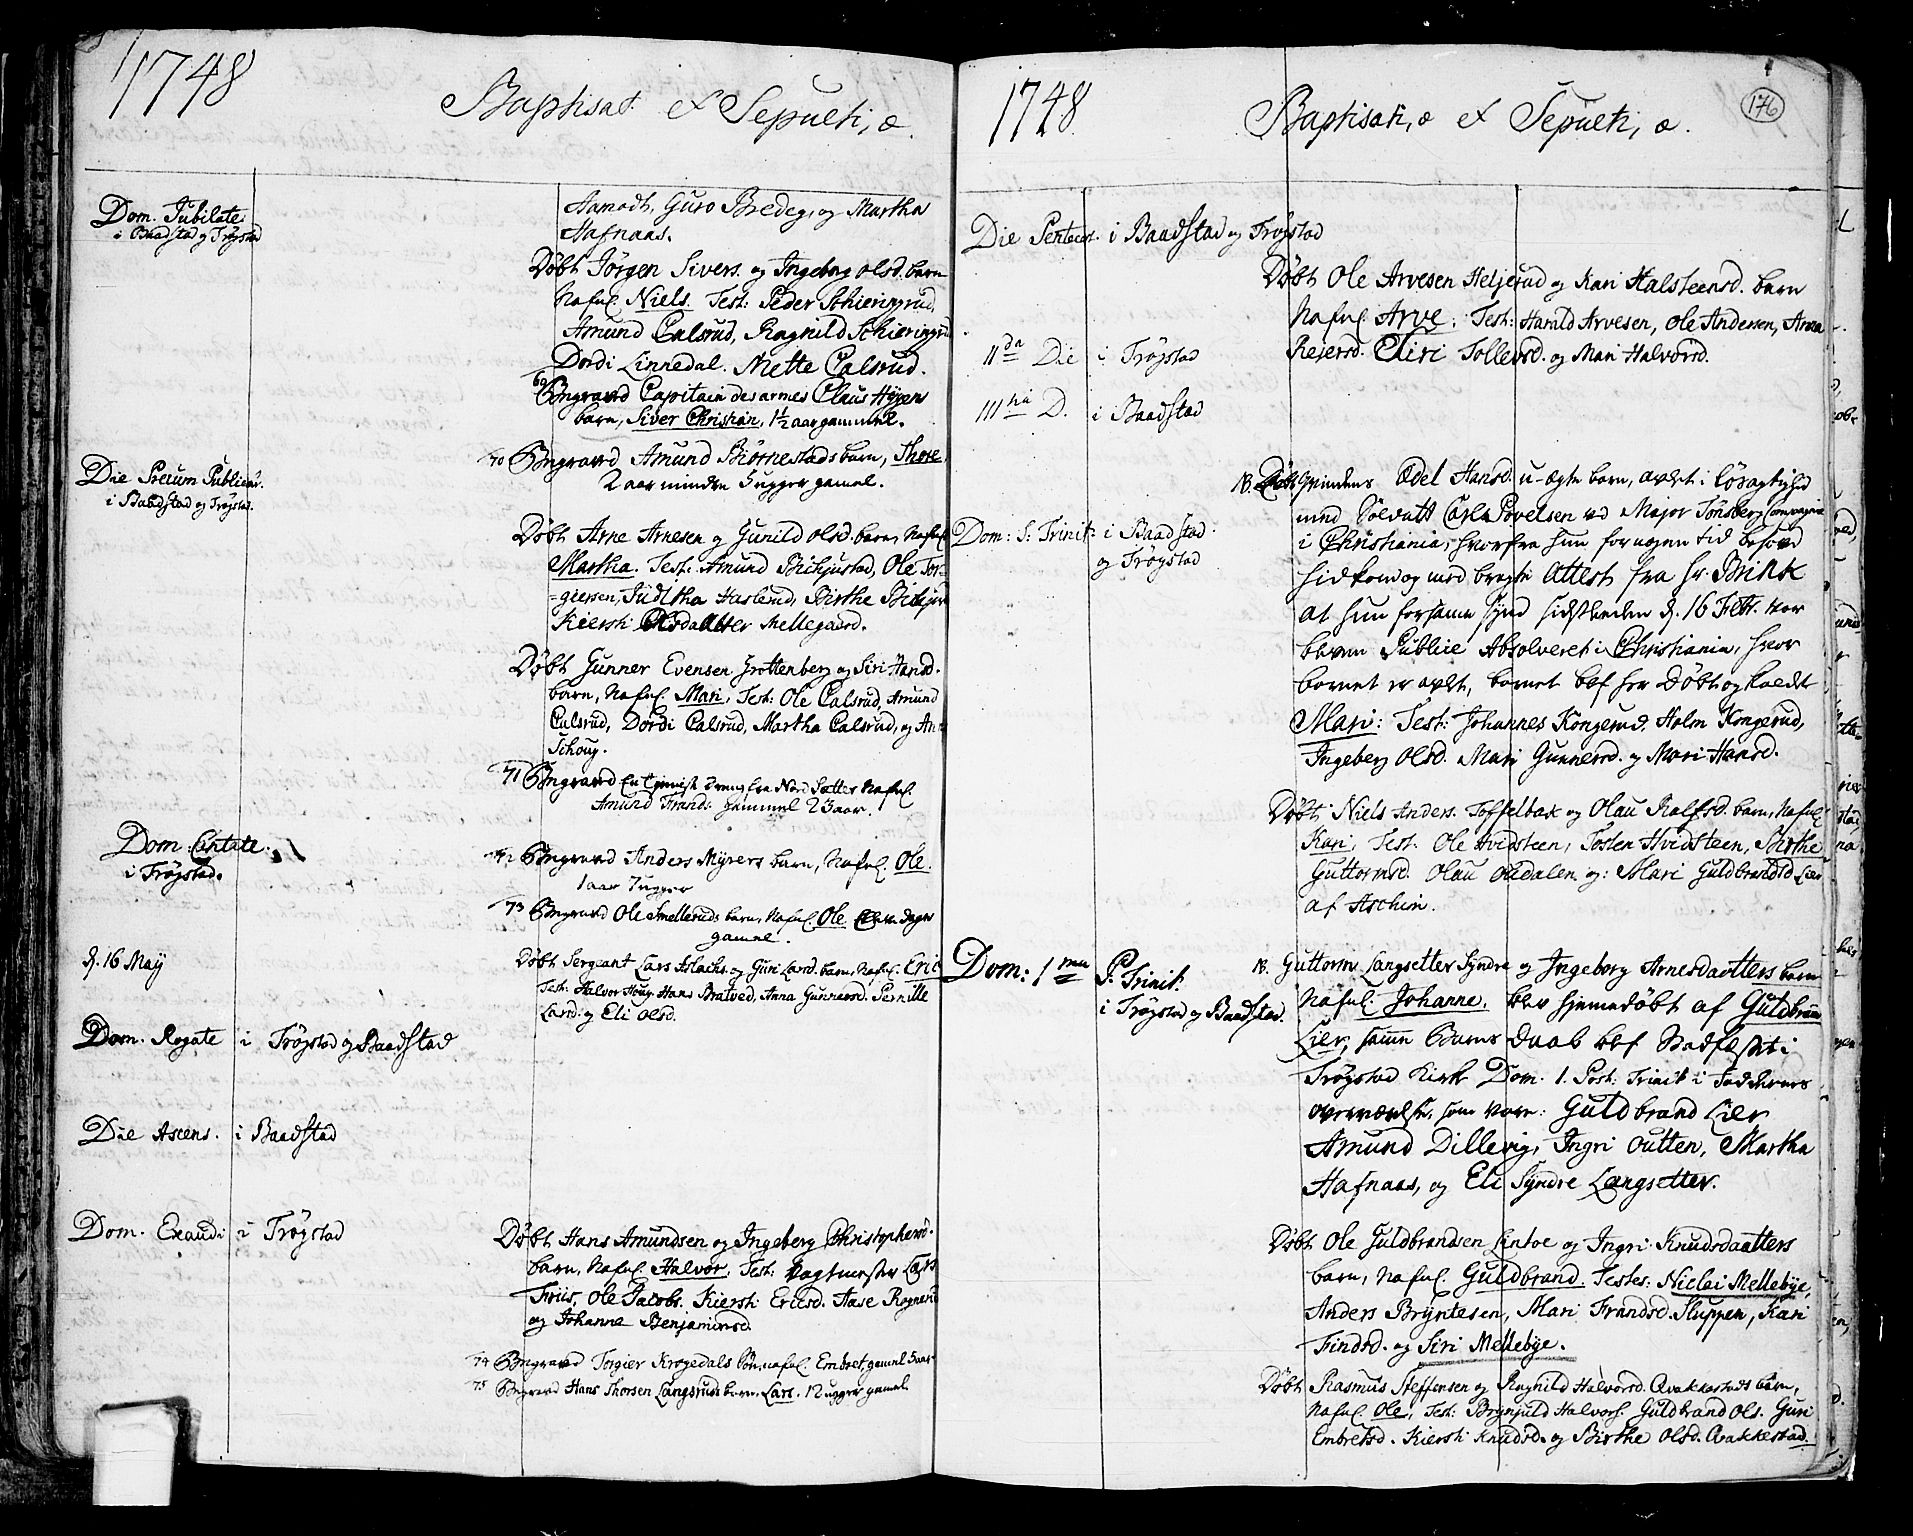 1748
Baptisat et Sepulti, æ.
Dom. Jubilate
i Baadstad og Trøgstad
Aamodt, Guro Bredeg, og Martha
Hafnaas.
Døbt Jørgen Sivers. og Ingeborg Olsd. barn
Nafnl. Niels. Test: Peder Schieringrud,
Amund Calsrud, Ragnild Schieringrud
Dordi Linnedal. Mette Calsrud.
69 Begravd Capitain des armes Claus Hyens
barn, Siver Christian, 1½ aar gammel.
70 Begravd Amund Biørnestads barn, Thore,
2 aar mindre 5 ugger gamel.
Die Precum Public:
i Baadstad og Trøgstad.
Døbt Arne Arnesen og Gunild Olsd. barn, Nafnl.
Martha. Test: Amund Bichjustad, Ole Tor-
-giersen, Juditha Haslerud, Birthe Bichju
Kiersti Olsdatter Mellegaard.
Døbt Gunner Evensen Grottenberg og Siri Hansd.
barn, Nafnl. Mari, Test: Ole Calsrud, Amund
Calsrud, Dordi Calsrud, Martha Calsrud, og
Schoug.
71 Begravd En dreng fra Nord Sætter Nafnl.
Amund Frands: gammel 23 aar.
Dom. Cantate.
i Trøgstad.
72 Begravd Anders Myrers barn, Nafnl. Ole.
1 aar 7 ugger
73 Begravd Ole Smelleruds barn, Nafnl. Ole dager
gamel.
d. 16 Maÿ
Døbt Sergeant Lars Aslachs. og Guri Larsd. barn, Nafnl. Eric
Test: Halvor Houg, Hans Bratved, Anna Gunnersd. Pernille
Larsd. og Eli Olsd.
Dom. Rogate i Trøgstad og Baadstad
Die Ascens. i Baadstad
Dom. Exaudi i Trøgstad
Døbt Hans Amundsen og Ingeberg Christophersd.
barn, Nafnl. Halvor, Test: Vagtmester Lars
Friis, Ole Jacobs. Kiersti Ericsd. Aase Rognerud
og Johanne Benjaminsd.
74 Begravd Torgier Krogedals Søn, nafnl. Embret, gaml 5 aar
75 Begravd Hans Thorsen Langsruds barn, Lars. 12 ugger gamel.
1748
Baptisati, æ et Sepulti, æ.
176
Die Pentecost. i Baadstad og Trøgstad
Døbt Ole Arvesen Heljerud og Kari Halsteensd. barn
Nafnl. Arve, Test: Harald Arvesen, Ole Andersen, Anna
Rejersd. Siri Tollevsd. og Mari Halvorsd.
II da Die i Trøgstad
III tia D. i Baadstad
NB. Døbt Qvindens Ædel Hansd. u-ægte barn, avlet i løsagtighed
med Soldatt Carl Povelsen ved Major Tønsberg Compagnie
i Christiania, hvorfra hun for nogen tid
hidkom og med bragte Attest fra Hr. Brink
at hun for samme Synd sidstleden d. 16 Febr. var
bleven Publice Absolveret i Christiania, hvor
barnet er avlet, barnet blef her Døbt og kaldt
Mari: Test: Johannes Kongerud, Holm Kongerud,
Ingeberg Olsd. Mari Gunnersd. og Mari Hansd.
Dom: S: Trinit: i Baadstad
og Trøgstad
Døbt Niels Anders. Toffelbak og Olau Rolfsd. barn, Nafnl.
Kari, Test: Ole Hvidsteen, Tosten Hvidsteen, Birthe
Guttormsd. Olau Oudalen og: Mari Guldbrandsd Lier
af Aschim.
Dom: 1 ma P. Trinit:
i Trøgstad og Baadstad.
NB. Guttorm Langsetter Syndre og Ingeborg Arnesdaatters barn
Nafnl. Johanne, blev hjemmedøbt af Guldbran
Lier, samme Barns Daab blef Stadfæstet i
Trøgstad Kirke Dom. 1. Post: Trinit: i Faddernes
overværelse, som vare: Guldbrand Lier
Amund Dillevig, Ingri Outten, Martha
Hafnaas, og Eli Syndre Langsetter.
Døbt Ole Guldbrandsen Lintoe og Ingri Knudsdaatters
barn, nafnl. Guldbrand. Testes: Niclai Mellebye,
Anders Bryntesen, Mari Frandsd. Sluppen, Kari
Findsd. og Siri Mellebye.
Døbt Rasmus Steffensen og Ragnild Halvorsd. Qvakkestads barn,
Nafnl. Ole, Test: Brynjuld Halvors. Guldbrand Ols. Guri
Embretsd. Kiersti Knudsd. og Birthe Olsd. Qvakkestad.